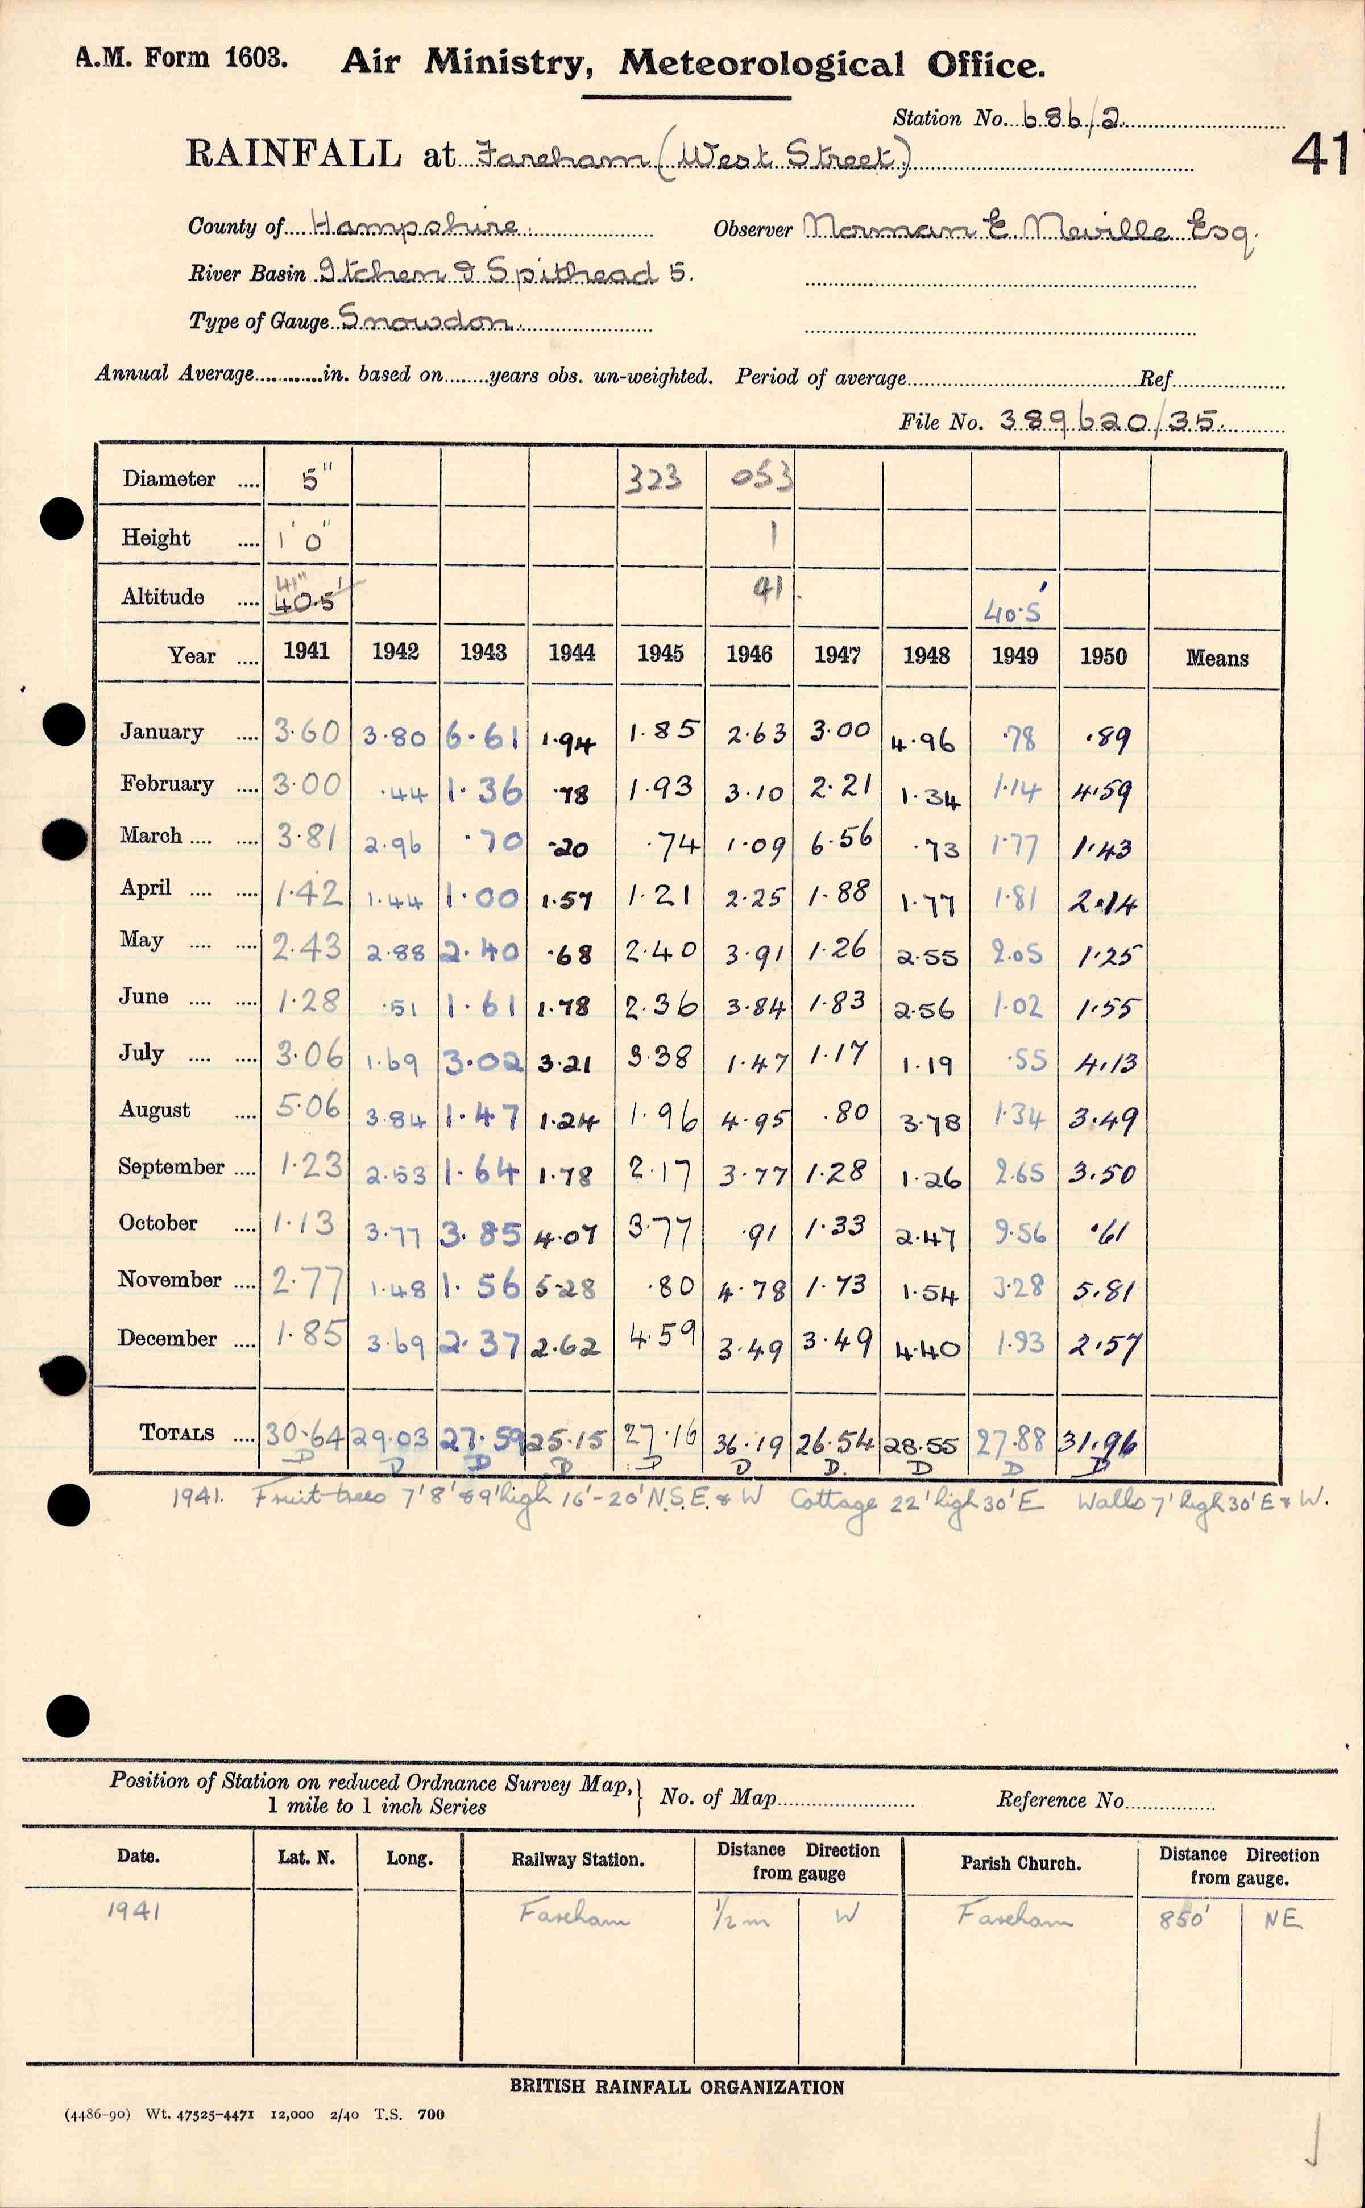 A.M. Form 1603. Air Ministry, Meteorological Office.
Station No. 686/2.
41
RAINFALL at Fareham (West Street)
County of Hampshire Observer Norman E. Neville Esq.
River Basin Itchen & Spithead 5.
Type of Gauge Snowdon
Annual Average............in. based on........years obs. un-weighted. Period of average.......... Ref..........
File No. 389620/35.
Diameter .... 5" 323 053
Height .... 1' 0" 1
Altitude .... 41" 40.5' 41 40.5'
Year .... 1941 1942 1943 1944 1945 1946 1947 1948 1949 1950 Means
January .... 3.60 3.80 6.61 1.94 1.85 2.63 3.00 4.96 .78 .89
February .... 3.00 .44 1.36 .78 1.93 3.10 2.21 1.34 1.14 4.59
March .... .... 3.81 2.96 .70 .20 .74 1.09 6.56 .73 1.77 1.43
April .... .... 1.42 1.44 1.00 1.57 1.21 2.25 1.88 1.77 1.81 2.14
May .... .... 2.43 2.88 2.40 .68 2.40 3.91 1.26 2.55 2.05 1.25
June .... .... 1.28 .51 1.61 1.78 2.36 3.84 1.83 2.56 1.02 1.55
July .... .... 3.06 1.69 3.02 3.21 3.38 1.47 1.17 1.19 .55 4.13
August .... 5.06 3.84 1.47 1.24 1.96 4.95 .80 3.78 1.34 3.49
September .... 1.23 2.53 1.64 1.78 2.17 3.77 1.28 1.26 2.65 3.50
October .... 1.13 3.77 3.85 4.07 3.77 .91 1.33 2.47 9.56 .61
November .... 2.77 1.48 1.56 5.28 .80 4.78 1.73 1.54 3.28 5.81
December .... 1.85 3.69 2.37 2.62 4.59 3.49 3.49 4.40 1.93 2.57
TOTALS .... 30.64 29.03 27.59 25.15 27.16 36.19 26.54 28.55 27.88 31.96
D D D D D D D. D D D
1941. Fruit-trees 7' 8' & 9' high 16'-20' N.S.E. & W Cottage 22' high 30' E Walls 7' high 30' E & W.
Position of Station on reduced Ordnance Survey Map, 1 mile to 1 inch Series } No. of Map.......... Reference No..........
Date. Lat. N. Long. Railway Station. Distance Direction from gauge Parish Church. Distance Direction from gauge.
1941 Fareham 1/2 m W Fareham 850' NE
BRITISH RAINFALL ORGANIZATION
(4486-90) Wt. 47525-4471 12,000 2/40 T.S. 700